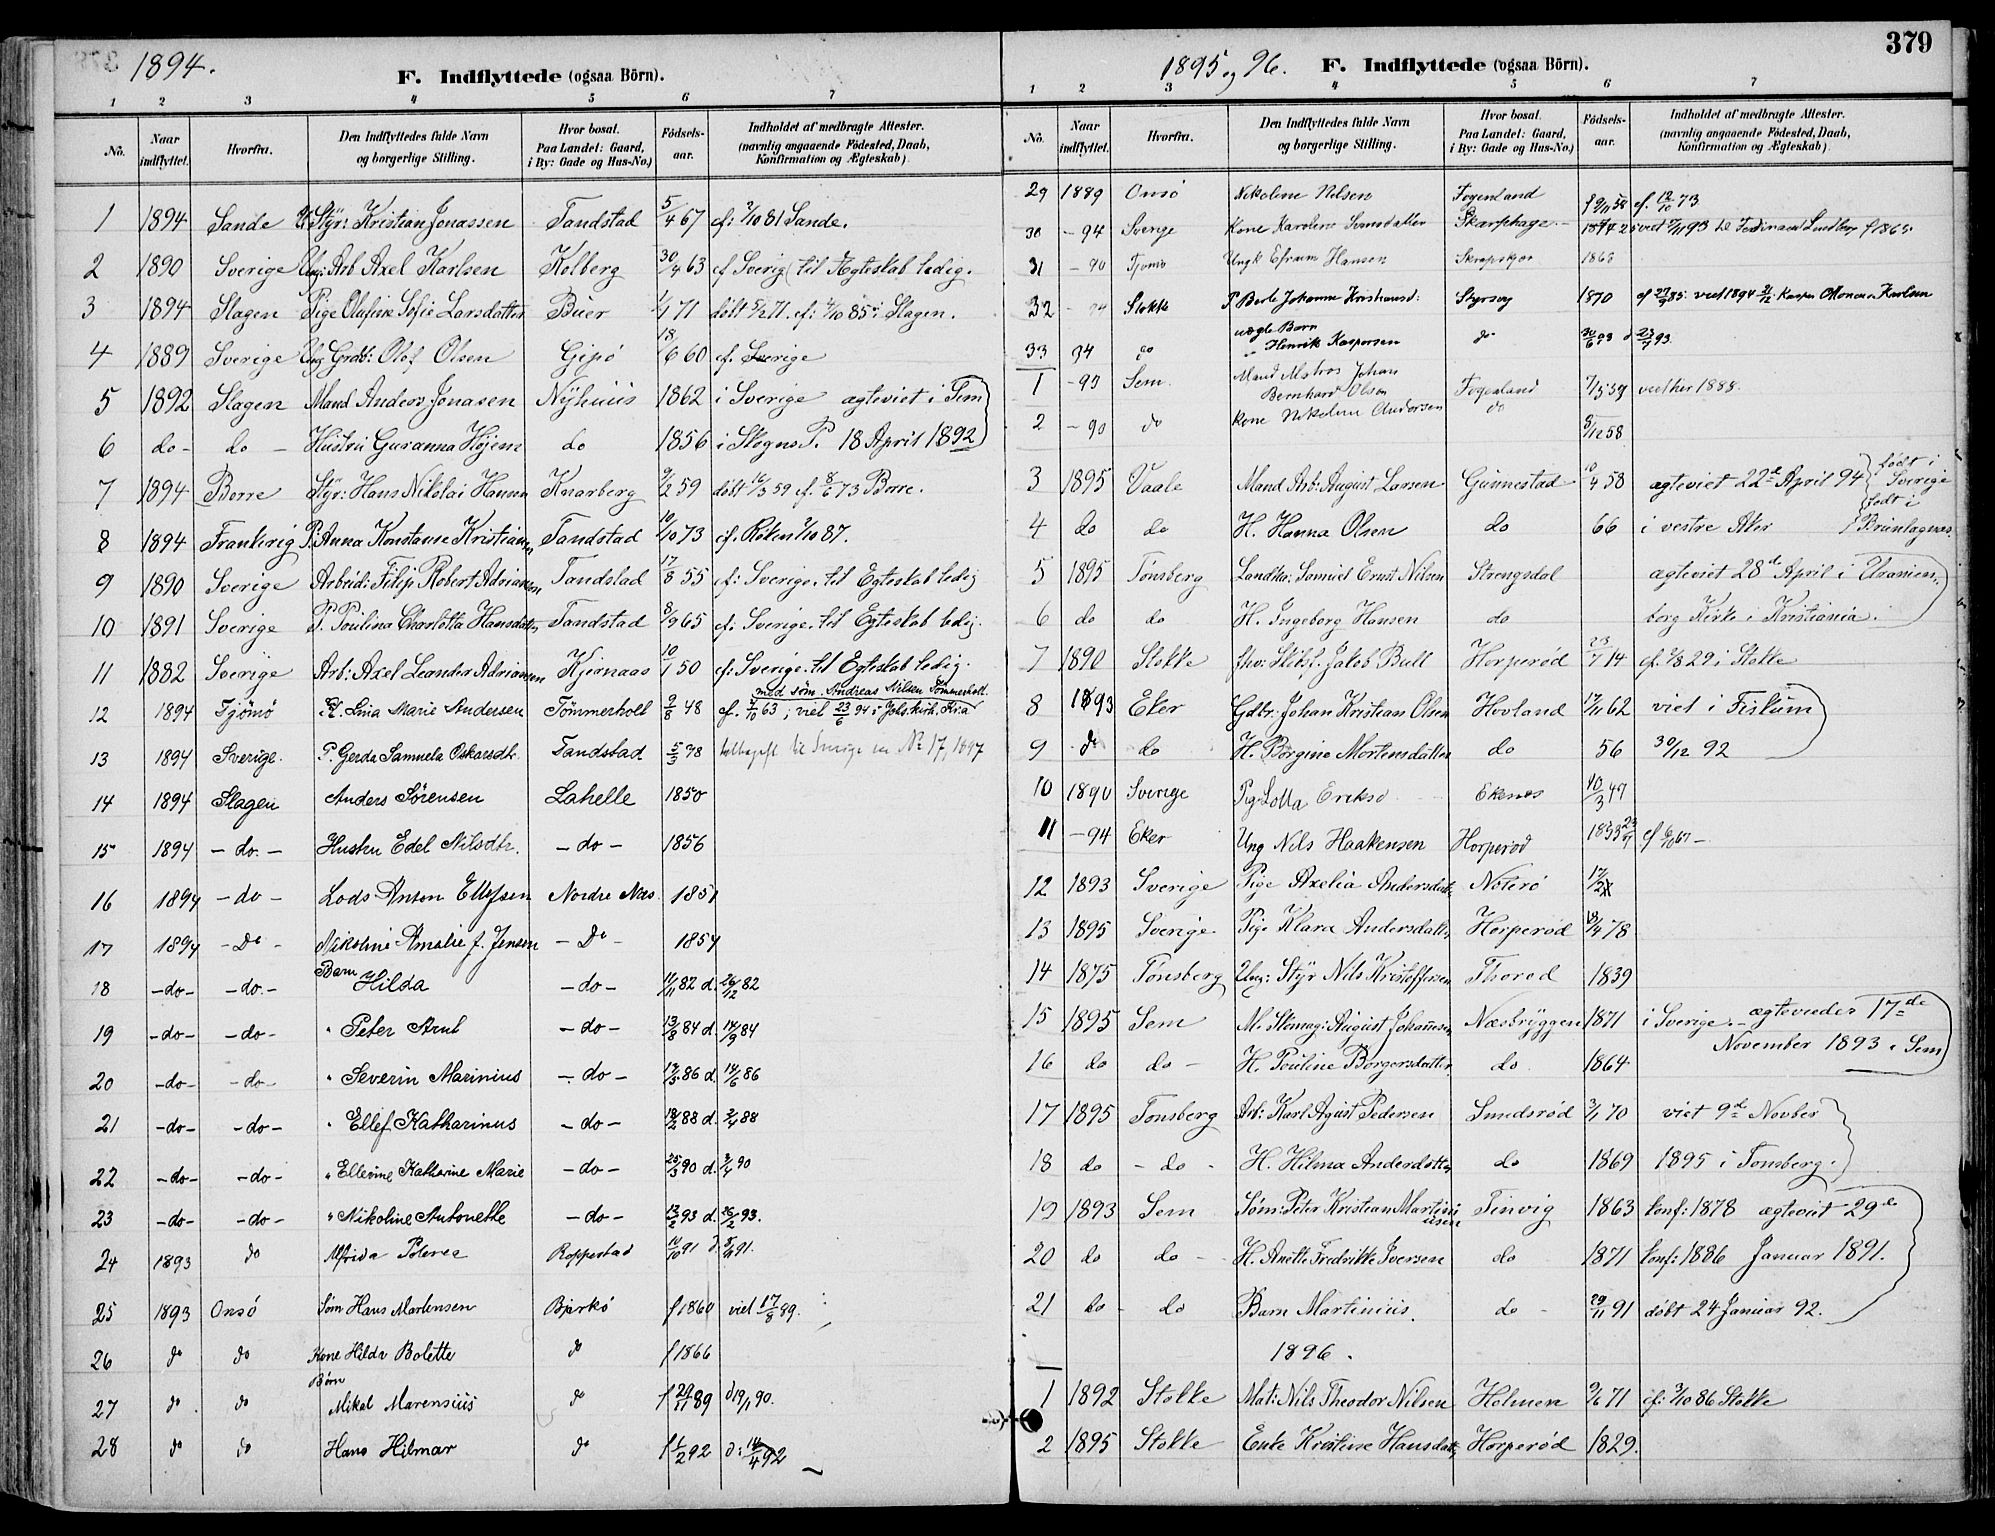 1894.
F. Indflyttede (ogsaa Börn).
1 2 3 4 5 6 7
No. Naar indflyttet. Hvorfra. Den Indflyttedes fulde Navn og borgerlige Stilling. Hvor bosat. Paa Landet: Gaard, i By: Gade og Hus-No.) Födsels-aar. Indholdet af medbragte Attester. (navnlig angaaende Födested, Daab, Konfirmation og Ægteskab).
1 1894 Sande Styr: Kristian Jonassen Tandstad 5/4 67 cf: 2/10 81 Sande.
2 1890 Sverige Ung: Arb Axel Karlsen Kolberg 30/4 63 cf Sverig til Ægteskab ledig.
3 1894 Slagen Pige Olafine Sofie Larsdatter Buer 1/1 71 döbt 5/2 71. cf: 4/10 85 i Slagen.
4 1889 Sverige Ung Grdb: Olof Olsen Gipö 18/6 60 cf. Sverige
5 1892 Slagen Mand Anders Jonasen Nyhuus 1862 i Sverige ægteviet i Sem
6 do- do - Hustru Guranna Höjem do 1856 i Skogns P. 18 April 1892
7 1894 Borre Styr: Hans Nikolai Hansen Knarberg 9/2 59 döbt 16/3 59 cf. 8/6 73 Borre.
8 1894 Frankrig P. Anna Konstanse Kristiansen Tandstad 10/10 73 cf. Röken 2/10 87.
9 1890 Sverige Arbeid: Filip Robert Adriansen Tandstad 17/8 55 cf: Sverige. til Egteskab ledig
10 1891 Sverige P. Poulina Charlotta Hansdatter Tandstad 8/9 65 cf: Sverige. til Egteskab ledig.
11 1882 Sverige Arb: Axel Leander Adriansen Kjernaas 10/1 50 cf: Sverige. til Egteskab ledig.
med söm. Andreas Nilsen Tömmerholt
12 1894 Tjömö H. Lina Marie Andersen Tömmerholt 9/8 48 cf. 4/10 63; viet 23/6 94 i Johs. kirk. Kria
13 1894 Sverige. P. Gerda Samuela Oskarsdtr. Tandstad 5/3 78 tilbagefl. til Sverige se No 17, 1897
14 1894 Slagen Anders Sörensen Lahelle 1850
15 1894 - do - Hustru Edel Nilsdtr. - do - 1856
16 1894 - do - Lods Anton Ellefsen Nordre Næs 1851
17 1894 - Do - Nikoline Amalie f. Jensen - Do - 1857
Barn
18 - do - - do - Hilda - do - 11/11 82 d. 26/12 82
19 - do - - do - " Peter Arnt - do - 13/8 84 d. 14/9 84
20 - do - - do - " Severin Marinius - do - 17/3 86 d. 14/6 86
21 - do - - do - " Ellef Katharinus - do - 18/2 88 d. 2/4 88
22 - do - - do - " Ellevine Kathrine Marie - do - 25/3 90 d. 3/4 90
23 - do - - do - " Nikoline Antonette - do - 13/2 93 d. 26/2 93.
24 1893 do Alfrida Polerea Roppestad 14/10 91 d. 8/11 91.
25 1893 Onsö Söm Hans Martensen Bjerkö f 1860 viet 17/8 89.
26 do do Kone Hilda Bolette do f 1866
Börn
27 do do Mikal Marensius do f 29/11 89 d 19/1 90.
28 do do Hans Hilmar do f 1/2 92 d: 14/4 92
379
1895 og 96. F. Indflyttede (ogsaa Börn).
1 2 3 4 5 6 7
No. Naar indflyttet. Hvorfra. Den Indflyttedes fulde Navn og borgerlige Stilling. Hvor bosat. Paa Landet: Gaard, i By: Gade og Hus-No.) Födsels-aar. Indholdet af medbragte Attester. (navnlig angaaende Födested, Daab, Konfirmation og Ægteskab).
29 1889 Onsö Nikoline Nilsen Fogenland f 9/11 58 cf. 12/10 73
30 - 94 Sverige Kone Karoline Svensdatter Skarphage - viet 17/11 93 til Ferdinand Lindberg f 1865
31 - 90 Tjömö Ungk Efraim Hansen 1863
32 Stokke P Berte Johanne Kristiansd: 1870 cf 27/9 85. viet 1894 Karlsen
uægte Barn
33 94 do " Henrik Kaspersen do 30/6 93 d 23/7 93.
1 - 93 Sem. Mand Matros Johan
Bernhard Olsen Fogenland 7/5 59 viet her 1888.
2 - 90 do Kone Nikoline Andersen do 5/12 58
3 1895 Vaale Mand Arb: August Larsen Gunnestad 10/4 58 ægteviet 22de April 94 födt i Sverige
4 do do H. Hanna Olsen do 66 i vestre Aker födt i Brunlagnæs.
5 1895 Tönsberg Landkr: Samuel Ernst Nilsen Strengsdal ægteviet 28de April i Uranien-
6 do do H. Ingeborg Hansen do borg Kirke i Kristiania.
7 1890 Stokke fhv: Skibsf. Jakob Bull Horperöd 23/7 14 cf. 2/8 29 i Stokke
8 1893 Eker Gdbr: Johan Kristian Olsen Hovland 17/11 62 viet i Fiskum
9 do do H. Borgine Mortensdatter do 56 30/12 92
10 1890 Sverige Pig: Lotta Eriksd Ekenes 10/3 47
11 - 94 Eker Ung Nils Haakensen Horperöd 1833 cf 67 -
12 1893 Sverige Pige Axelia Andersdatter Noterö
13 1895 Sverige. Pige Klara Andersdatter Horperöd 19/4 78
14 1875 Tönsberg Ung: Styr Nils Kristoffersen Thorod 1839
15 1895 Sem M. Stenmag: August Johannesen Næsbryggen 1871 i Sverige. - ægtevieder 17de
November 1893 i Sem
16 do do - H. Pouline Borgersdatter do 1864
17 1895 Tonsberg Arb: Karl Agust Pedersen Smidsröd 3/1 70 viet 9de Novber
18 do - do - H. Hilma Andersdatter do 1869 1895 i Tonsberg.
19 1893 Sem Söm: Peter Kristian Martiniusen Tinvig 1863 konf: 1878 ægteviet 29de
20 do do - H. Anette Fredrikke Iversen do 1871 konf: 1886 Januar 1891.
21 do - do Barn Martinius. do - 29/11 91 döbt 24 Januar 92.
1896.
1 1892 Stokke Mat: Nils Theodor Nilsen Holmen 9/6 71 cf: 3/10 86 Stokke
2 1895 Stokke Enke Kristine Hansdatter Horperöd 1829.